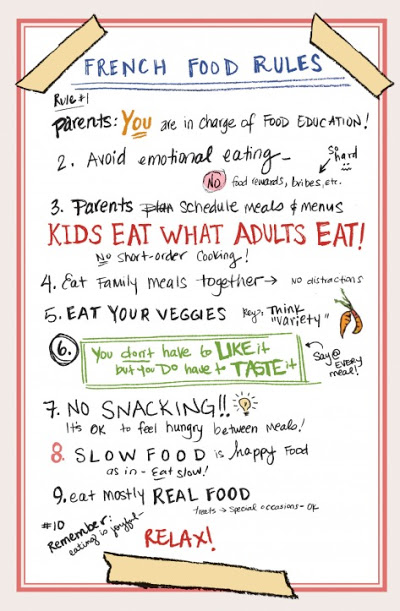 FRENCH FOOD RULES
Rule #1
Parents: YOU are in charge of FOOD EDUCATION!
2. Avoid emotional eating
So hard
NO food rewards, bribes, etc.
3. Parents plan SCHEDULE MEALS & MENUS
KIDS EAT WHAT ADULTS EAT!
NO Short-order cooking!
4. Eat Family meals together → NO distractions
5. EAT YOUR VEGGIES Key: Think "Variety"
6. You don't have to LIKE it
but you DO have to TASTE it
Say @ EVERY meal!
7. NO SNACKING!!
It's OK to feel hungry between meals!
8. SLOW FOOD is happy Food
as in - Eat slow!
9. eat mostly REAL FOOD
treats → Special occasions - OK
#10
Remember:
eating is joyful -
RELAX!